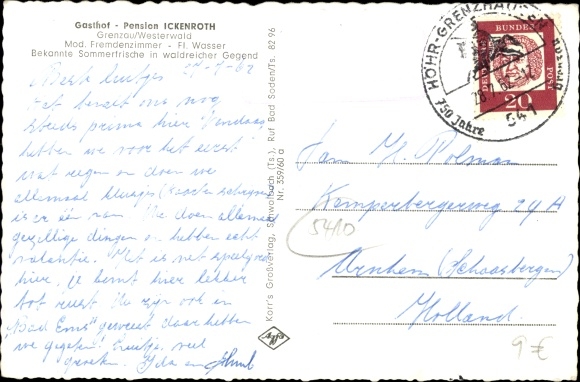 Gasthof - Pension ICKENROTH
Grenzau/Westerwald
Mod. Fremdenzimmer - Fl. Wasser
Bekannte Sommerfrische in waldreicher Gegend
Beste
Het bevalt ons nog
steeds prima hier. Vandaag
hebben we voor het eerst
wat regen en doen we
allemaal
is er een van. We doen allemaal
gezellige dingen en hebben echt
vakantie. Het is niet
hier. U komt hier lekker
tot rust. We zijn ook in
"Bad Ems" geweest daar hebben
we gegeten! veel
groeten. en
Korr's Großverlag, Schwalbach (Ts.), Ruf Bad Soden/Ts. 82 96
Nr. 359/60 a
Agfa
HÖHR-GRENZHAUSEN
750 Jahre
541
DEUTSCHE BUNDESPOST
20
Fam. H. Rolman
Kemperbergerweg 24 A
5410
Arnhem (Schaarsbergen)
Holland.
9 €